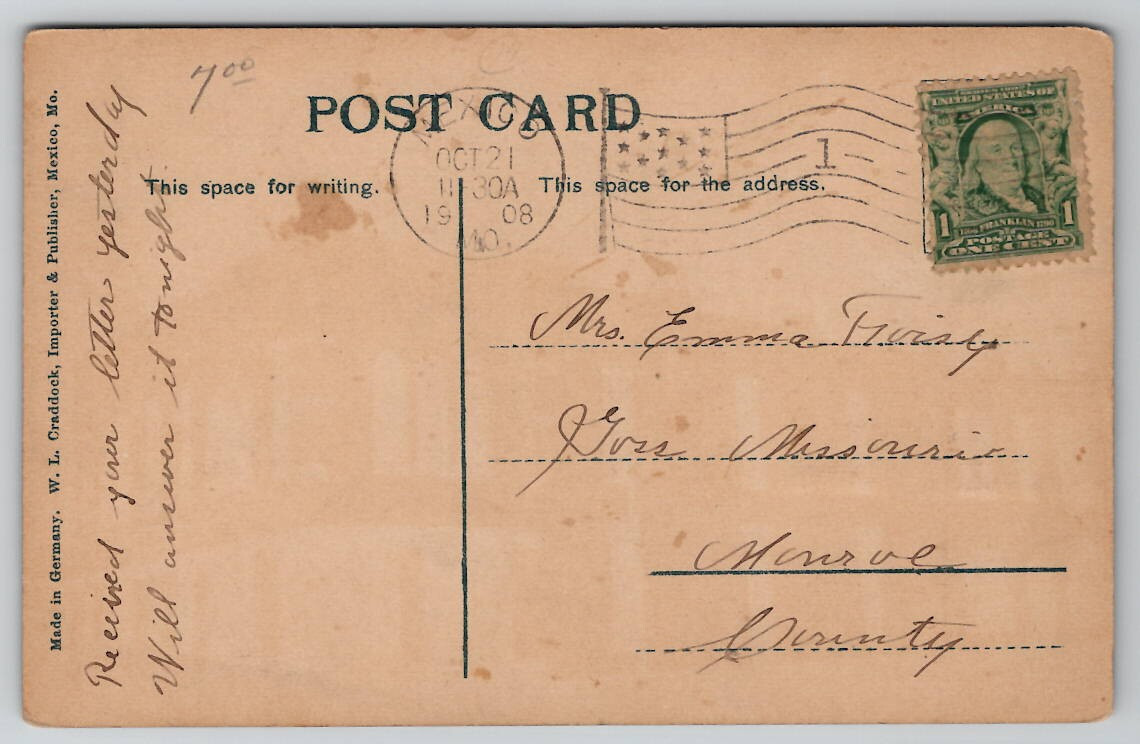 7 00
POST CARD
MEXICO
OCT 21
11-30A
19 08
MO.
1
SERIES 1902
UNITED STATES OF
AMERICA
1706 FRANKLIN 1790
1 1
POSTAGE
ONE CENT
This space for writing.
This space for the address.
Made in Germany. W. L. Craddock, Importer & Publisher, Mexico, Mo.
Received your letter yesterday
Will answer it tonight.
Mrs. Emma
Goss Missouri
Monroe
County